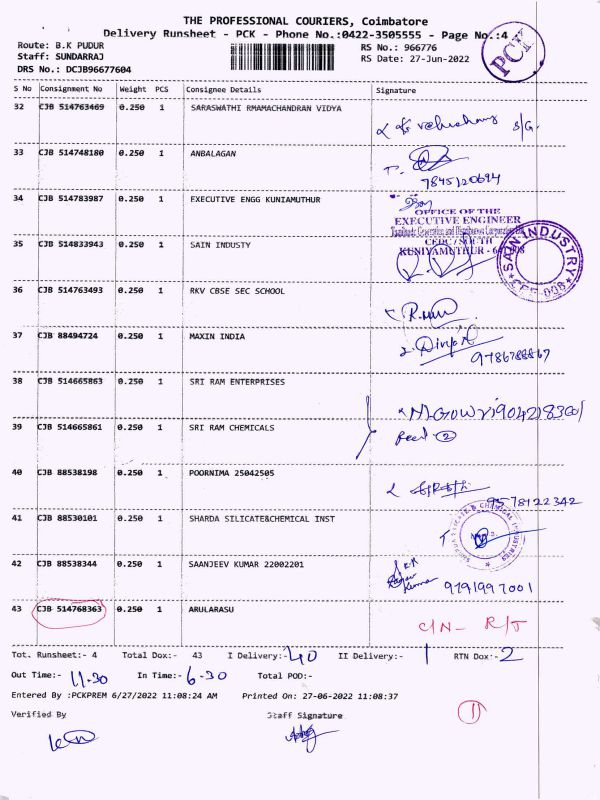 THE PROFESSIONAL COURIERS, Coimbatore
Delivery Runsheet - PCK - Phone No.:0422-3505555 - Page No.:4
PCK
Route: B.K PUDUR
RS No.: 966776
Staff: SUNDARRAJ
RS Date: 27-Jun-2022
DRS No.: DCJB96677604
S No Consignment No Weight PCS Consignee Details Signature
32 CJB 514763469 0.250 1 SARASWATHI RMAMACHANDRAN VIDYA
S/G.
33 CJB 514748180 0.250 1 ANBALAGAN
7845120694
34 CJB 514783987 0.250 1 EXECUTIVE ENGG KUNIAMUTHUR
OFFICE OF THE
EXECUTIVE ENGINEER
Tamilnadu Generation and Distribution Corporation
CEDC/SOUTH
KUNIYAMUTHUR
35 CJB 514833943 0.250 1 SAIN INDUSTY
SAIN INDUSTRY
36 CJB 514763493 0.250 1 RKV CBSE SEC SCHOOL
37 CJB 88494724 0.250 1 MAXIN INDIA
9786788867
38 CJB 514665863 0.250 1 SRI RAM ENTERPRISES
39 CJB 514665861 0.250 1 SRI RAM CHEMICALS
40 CJB 88538198 0.250 1 POORNIMA 25042505
9578122342
41 CJB 88530101 0.250 1 SHARDA SILICATE&CHEMICAL INST
42 CJB 88538344 0.250 1 SAANJEEV KUMAR 22002201
9791997001
43 CJB 514768363 0.250 1 ARULARASU
C/N- R/T
Tot. Runsheet:- 4 Total Dox:- 43 I Delivery:- 40 II Delivery:- 1 RTN Dox:- 2
Out Time:- 11.30 In Time:- 6.30 Total POD:-
Entered By :PCKPREM 6/27/2022 11:08:24 AM Printed On: 27-06-2022 11:08:37
Verified By Staff Signature
1